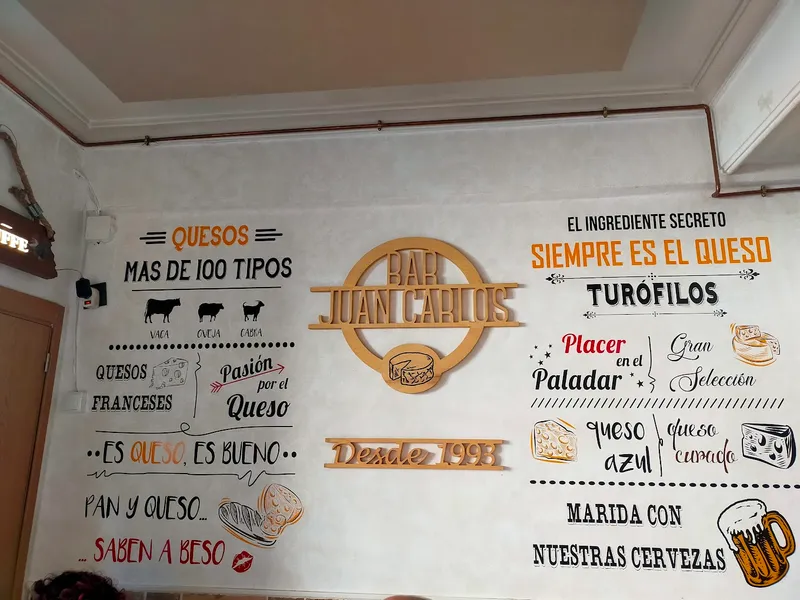 FFE
QUESOS
MAS DE 100 TIPOS
VACA OVEJA CABRA
QUESOS
FRANCESES
Pasión
por el
Queso
ES QUESO, ES BUENO
PAN Y QUESO...
... SABEN A BESO
BAR
JUAN CARLOS
Desde 1993
EL INGREDIENTE SECRETO
SIEMPRE ES EL QUESO
TURÓFILOS
Placer
en el
Paladar
Gran
Selección
queso
azul
queso
curado
MARIDA CON
NUESTRAS CERVEZAS